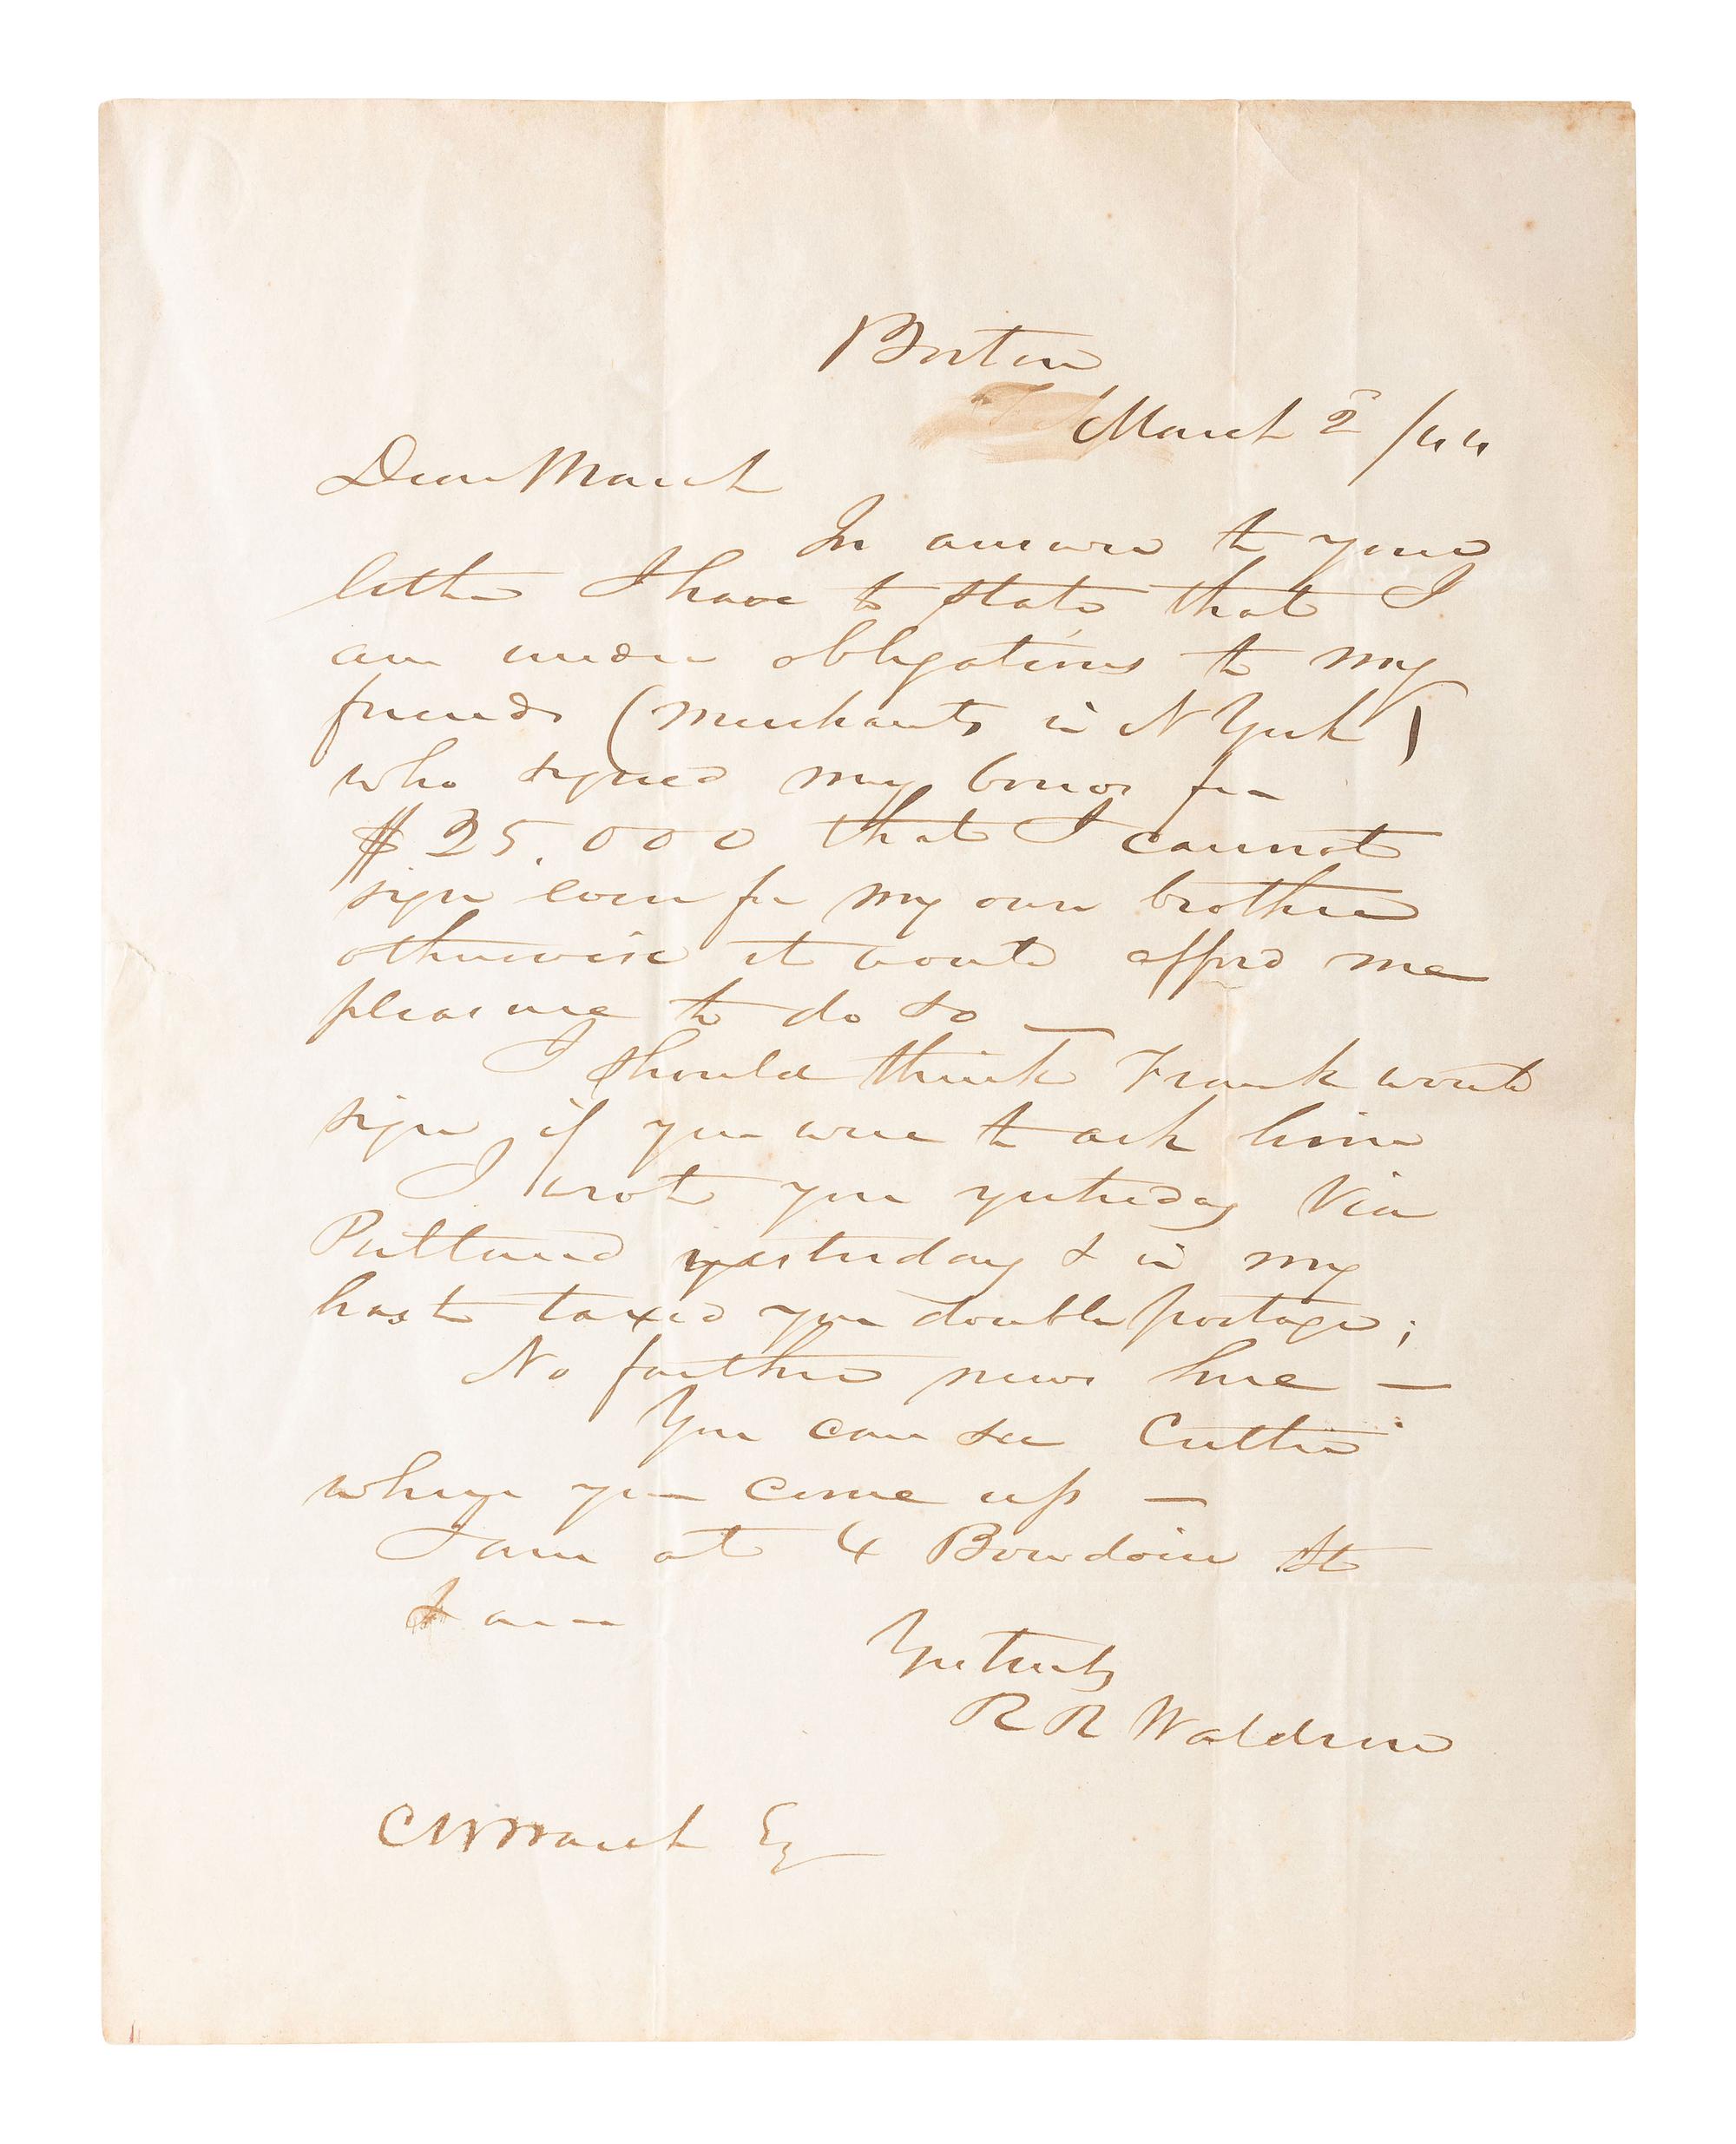 Boston
March 2 /44
Dear March
In answer to your
letter I have to state that I
am under obligations to my
friends (merchants in N York)
who signed my bond for
$25.000 that I cannot
sign even for my own brother
otherwise it would afford me
pleasure to do so —
I should think Frank would
sign if you were to ask him
I wrote you yesterday Via
Portland yesterday & in my
haste taxed you double postage;
No farther news here —
You can see Cutter
when you come up —
I am at 4 Bowdoin St
I am
Yrs truly
R R Waldron
C W March Esq